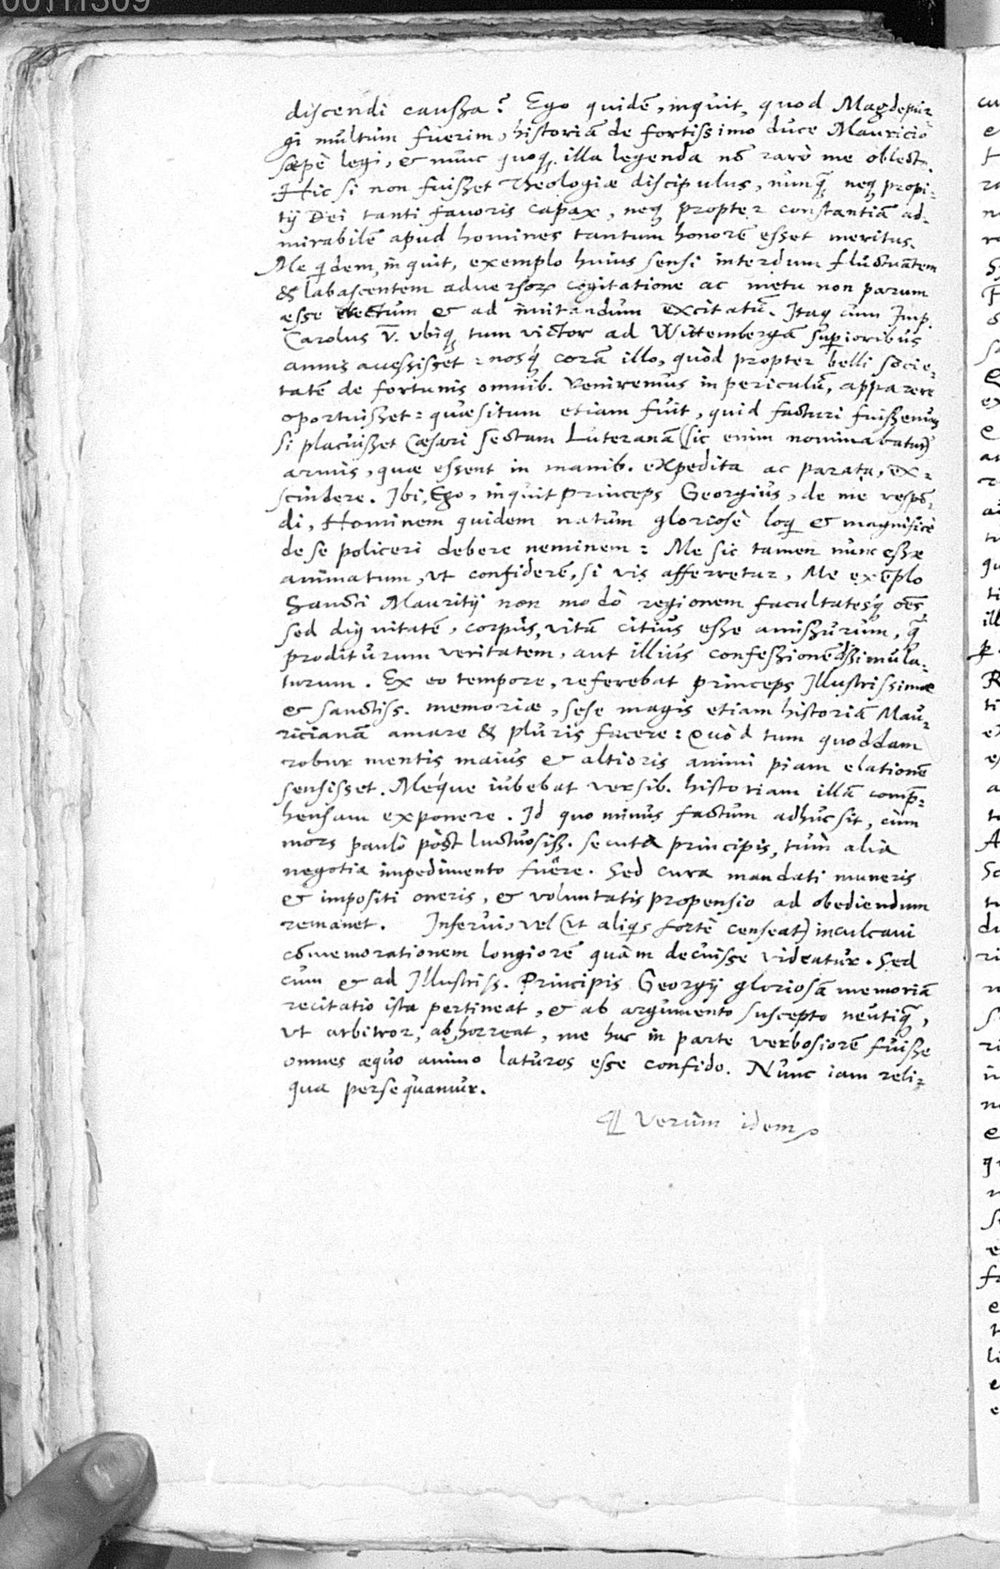 00111309
discendi caussa? Ego quidē, inquit, quod Magdepur-
gi multum fuerim, historiā de fortissimo duce Mauricio
sæpè legi, & nunc quoq; illa legenda nō rarò me oblect.
Hic si non fuisset Theologiæ discipulus, nunq̄ neq; propi-
tij Dei tanti favoris capax, neq; propter constantiā ad-
mirabilē apud homines tantum honorē esset meritus.
Me q̇dem, inquit, exemplo huius sensi interdum fluctuātem
& labascentem adversor cogitatione ac metu non parum
esse erectum & ad imitandum excitatū. Itaq; cùm Imp.
Carolus V. ubiq; tum victor ad Wittembergā supioribus
annis accessisset: nosq́ corā illo, quòd propter belli socie-
tatē de fortunis omnib. veniremus in periculū, apparere
oportuisset: quæsitum etiam fuit, quid facturi fuissemus
si placuisset Cæsari sectam Luteranā (sic enim nominabatur)
armis, quæ essent in manib. expedita ac parata, ex-
scindere. Ibi, Ego, inquit princeps Georgius, de me respō-
di, Hominem quidem natum gloriosè loqi & magnificè
de se policeri debere neminem: Me sic tamen nunc esse
animatum, ut confiderē, si vis afferretur, Me exēplo
Sancti Mauritij non modò regionem facultatesq́ oēs,
sed dignitatē, corpus, vitā citius esse amissurum, q̄
proditurum veritatem, aut illius confessionē dissimula-
turum. Ex eo tempore, referebat princeps Illustrissimæ
& sanctiss. memoriæ, sese magis etiam historiā Mau-
ricianā amare & pluris facere: quòd tum quoddam
robur mentis maius & altioris animi piam elationē
sensisset. Méque iubebat versib. historiam illā comp̄-
hensam exponere. Id quo minus factum adhuc sit, cùm
mors paulò pòst luctuosiss. secuta principis, tùm alia
negotia impedimento fuêre. Sed cura mandati muneris
& impositi oneris, & voluntatis propensio ad obediendum
remanet. Inservi, vel (ut aliqis fortè censeat) inculcavi
cōmemorationem longiorē quàm decuisse videatur. Sed
cum & ad Illustriss. Principis Georgij gloriosā memoriā
recitatio ista pertineat, & ab argumento suscepto neutiq̄,
ut arbitror, abhorreat, me hac in parte verbosiorē fuisse
omnes æquo animo laturos esse confido. Nunc iam reli-
qua persequamur.
¶ Verùm idem